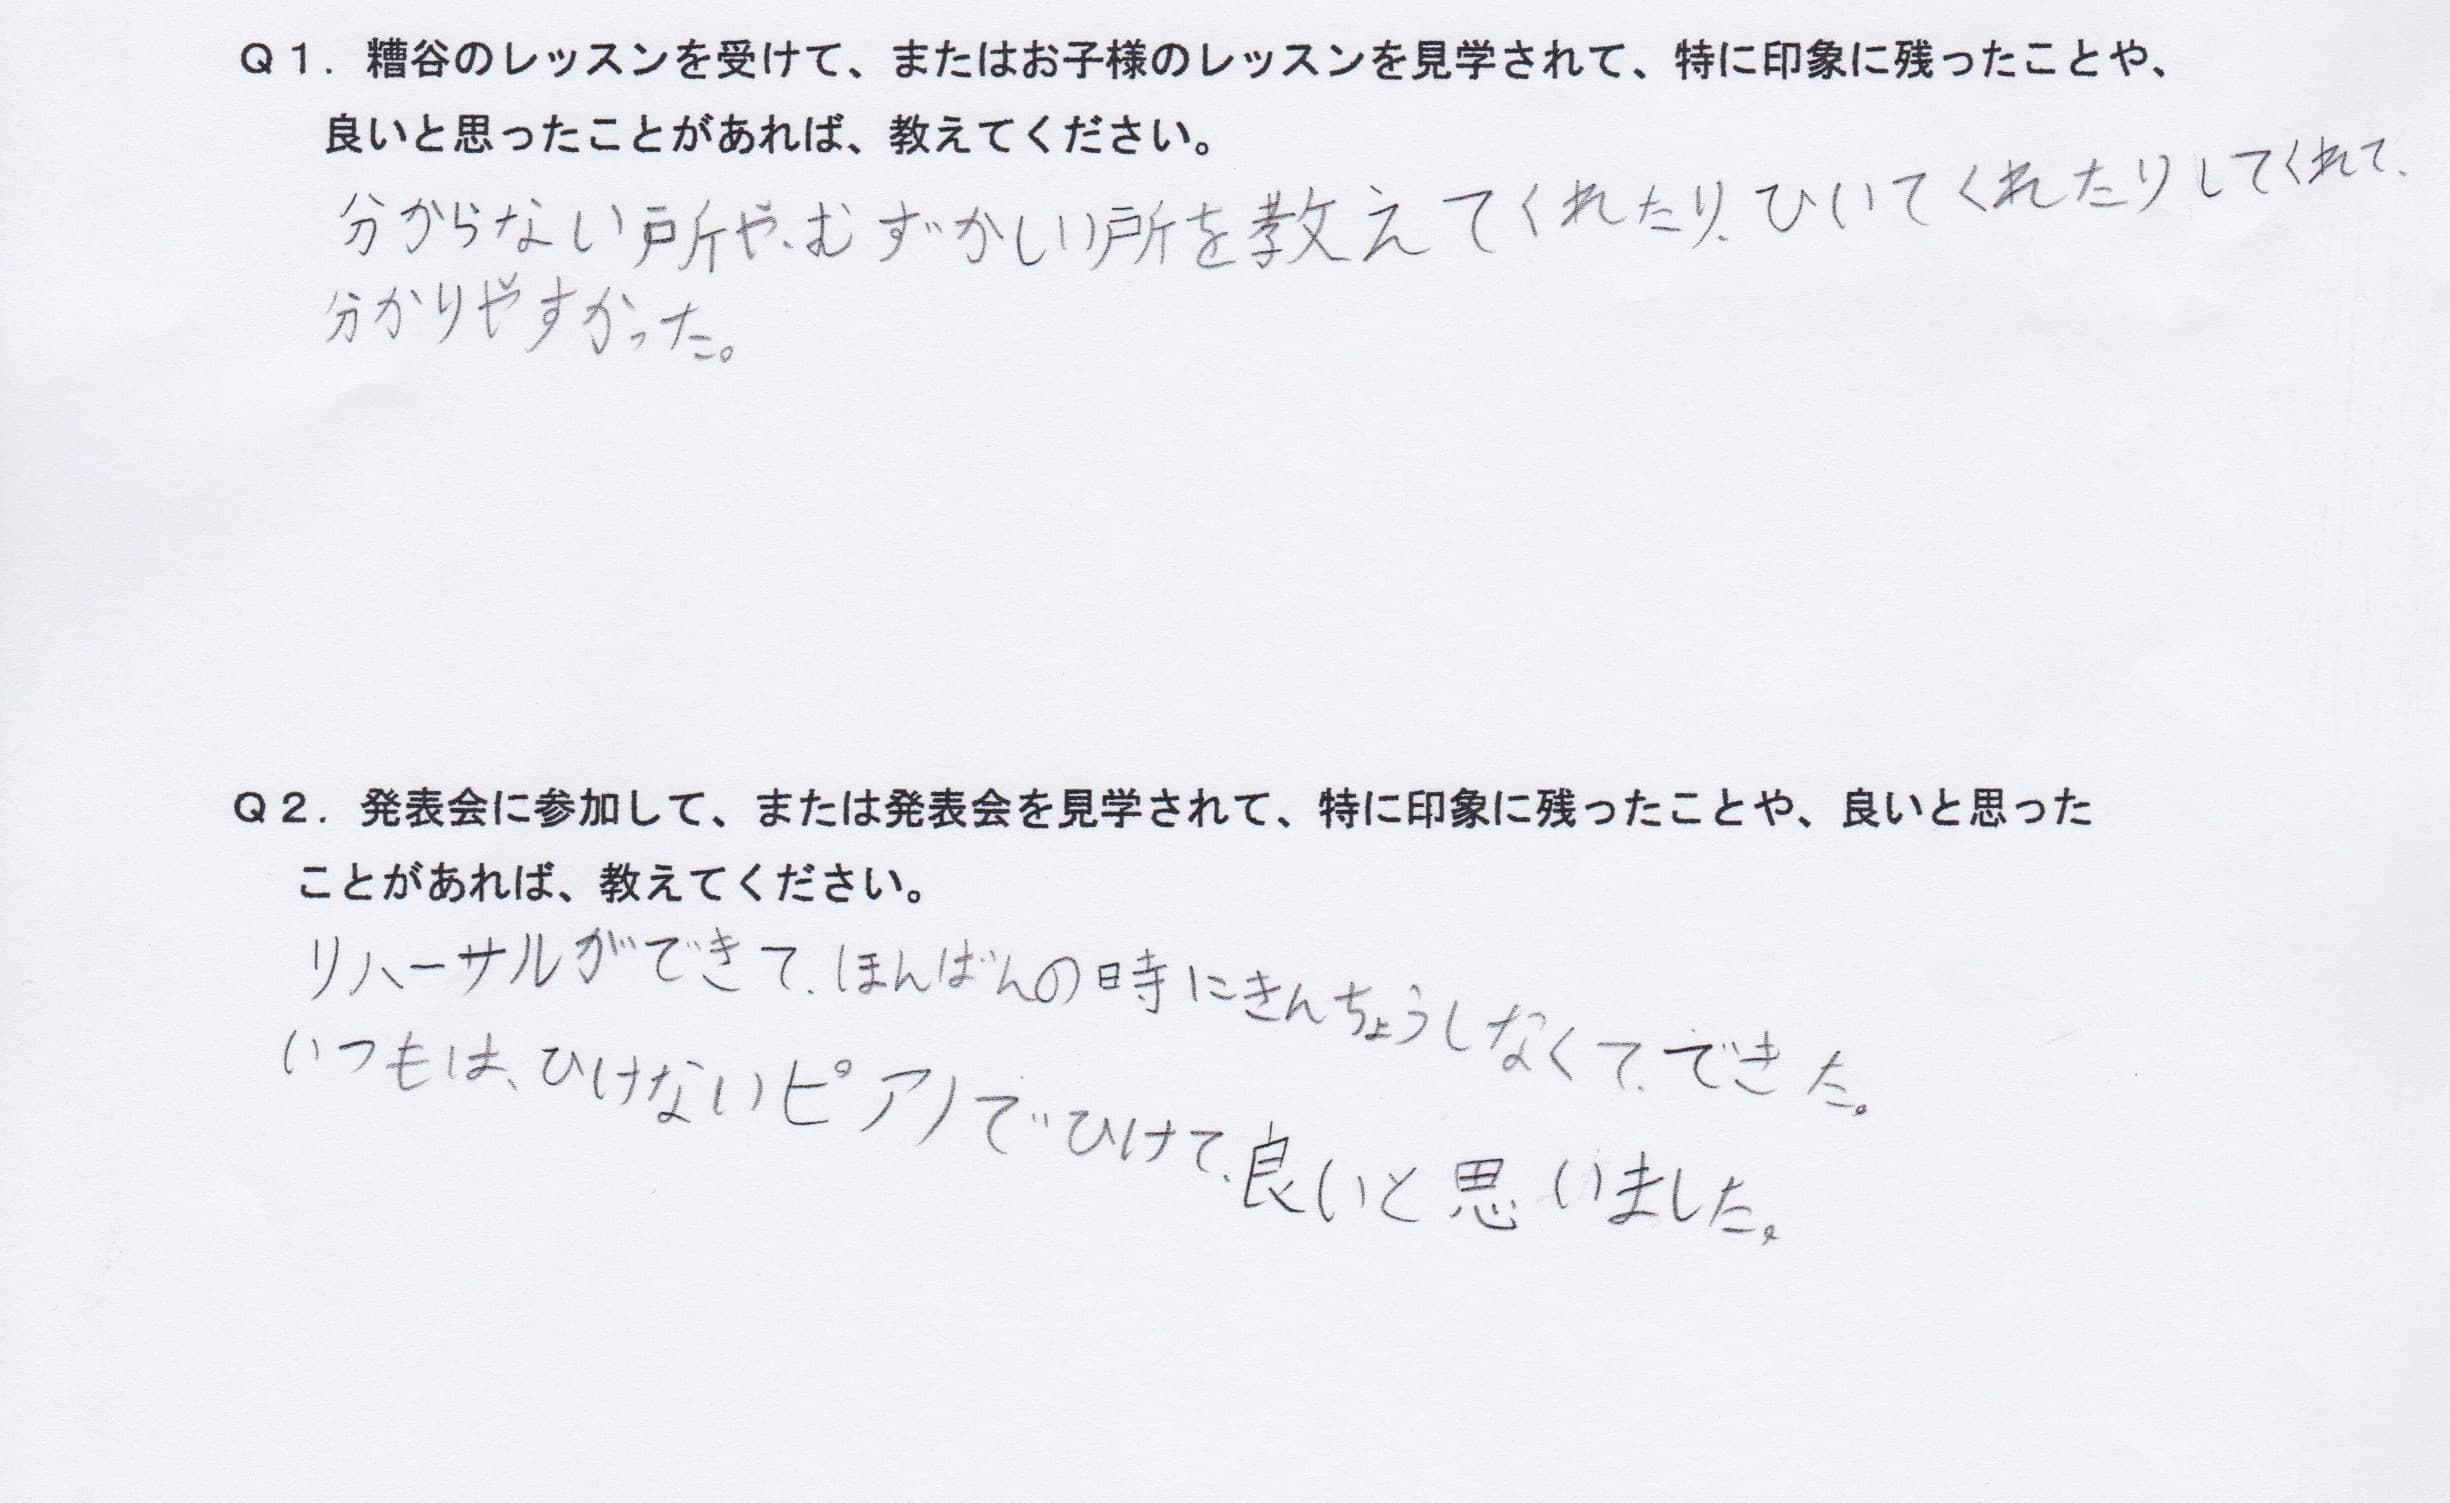 Q1．糟谷のレッスンを受けて、またはお子様のレッスンを見学されて、特に印象に残ったことや、
良いと思ったことがあれば、教えてください。
分からない所や、むずかしい所を教えてくれたり、ひいてくれたりしてくれて、
分かりやすかった。
Q2．発表会に参加して、または発表会を見学されて、特に印象に残ったことや、良いと思った
ことがあれば、教えてください。
リハーサルができて、ほんばんの時にきんちょうしなくて、できた。
いつもは、ひけないピアノでひけて、良いと思いました。